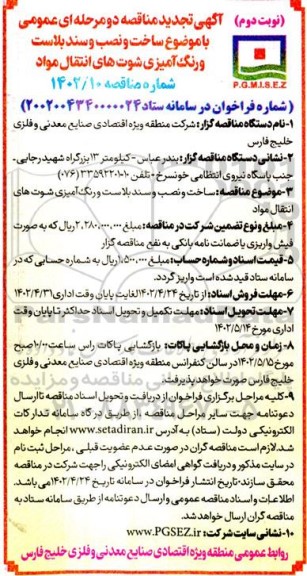 (نوبت دوم)
آگهی تجدید مناقصه دو مرحله ای عمومی
با موضوع ساخت و نصب و سند بلاست
و رنگ آمیزی شوت های انتقال مواد
P.G.M.I.S.E.Z
شماره مناقصه ۱۴۰۲/۱۰
(شماره فراخوان در سامانه ستاد ۲۰۰۲۰۰۴۳۴۰۰۰۰۰۲۴)
۱-نام دستگاه مناقصه گزار: شرکت منطقه ویژه اقتصادی صنایع معدنی و فلزی
خلیج فارس
۲-نشانی دستگاه مناقصه گزار: بندرعباس - کیلومتر ۱۳ بزرگراه شهید رجایی-
جنب پاسگاه نیروی انتظامی خونسرخ - تلفن ۱۰-۳۳۵۹۲۲۰۱ (۰۷۶)
۳-موضوع مناقصه: ساخت و نصب و سند بلاست و رنگ آمیزی شوت های
انتقال مواد
۴-مبلغ و نوع تضمین شرکت در مناقصه: مبلغ ۲,۲۸۰,۰۰۰,۰۰۰ ریال که به صورت
فیش واریزی یا ضمانت نامه بانکی به نفع مناقصه گزار
۵-قیمت اسناد و شماره حساب: مبلغ ۱,۵۰۰,۰۰۰ ریال به شماره حسابی که در
سامانه ستاد قید شده است واریز گردد.
۶-مهلت فروش اسناد: از تاریخ ۱۴۰۲/۴/۲۴ لغایت پایان وقت اداری ۱۴۰۲/۴/۳۱
۷-مهلت تحویل اسناد: مهلت تکمیل و تحویل اسناد حداکثر تا پایان وقت
اداری مورخ ۱۴۰۲/۵/۱۴
۸-زمان و محل بازگشایی پاکات: بازگشایی پاکات راس ساعت ۱۰/۰۰ صبح
مورخ ۱۴۰۲/۵/۱۵ در سالن کنفرانس منطقه ویژه اقتصادی صنایع معدنی و فلزی
خلیج فارس صورت خواهد پذیرفت.
۹-کلیه مراحل برگزاری فراخوان از دریافت و تحویل اسناد مناقصه تا ارسال
دعوتنامه جهت سایر مراحل مناقصه، از طریق درگاه سامانه تدارکات
الکترونیکی دولت (ستاد) به آدرس www.setadiran.ir انجام خواهد
شد. لازم است مناقصه گران در صورت عدم عضویت قبلی، مراحل ثبت نام
در سایت مذکور و دریافت گواهی امضای الکترونیکی را جهت شرکت در مناقصه
محقق سازند. تاریخ انتشار فراخوان در سامانه تاریخ ۱۴۰۲/۴/۲۴ می باشد.
اطلاعات و اسناد مناقصه عمومی و ارسال دعوتنامه از طریق سامانه ستاد به
مناقصه گران ارسال خواهد شد.
۱۰-نشانی سایت شرکت: www.PGSEZ.ir
روابط عمومی منطقه ویژه اقتصادی صنایع معدنی و فلزی خلیج فارس